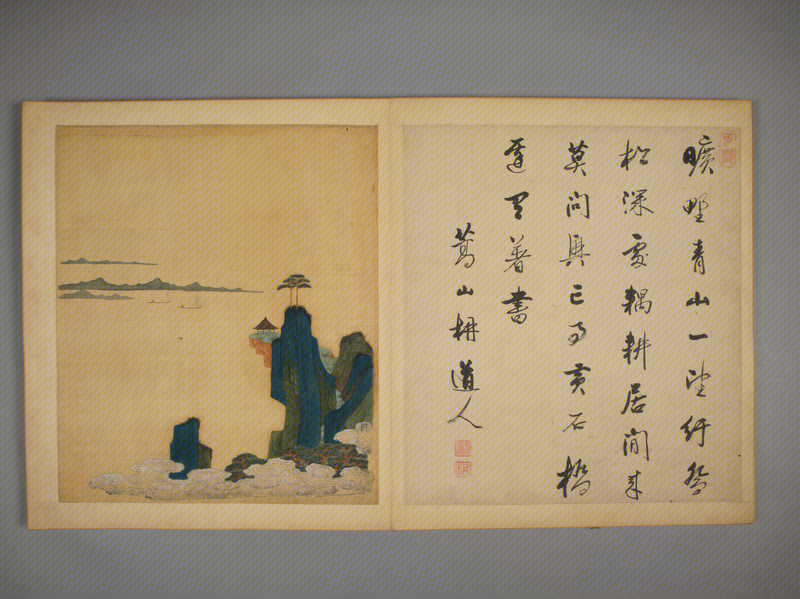 曠野青山一望紆為
松深處耦耕居閒來
莫問興亡事黃石橋
邊只著書
蔦山枏道人